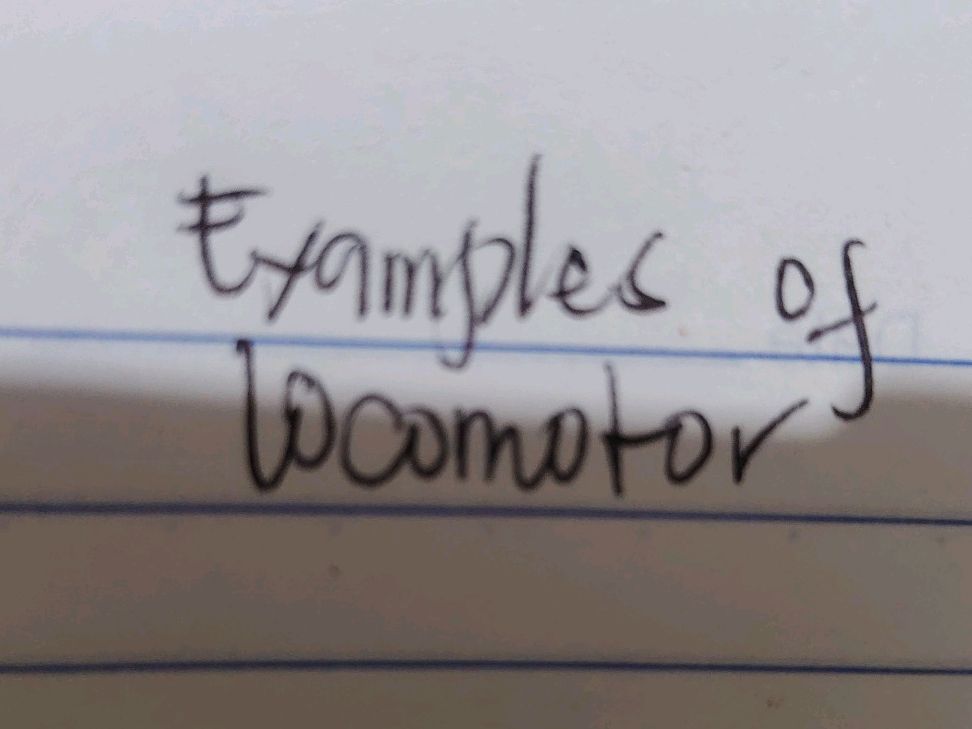 Examples of
locomotor